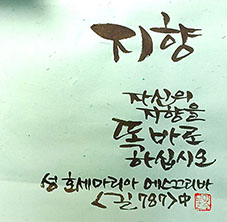 지향
자신의
지향을
똑바로
하십시오
성 호세마리아 에스끄리바
<길 787>中